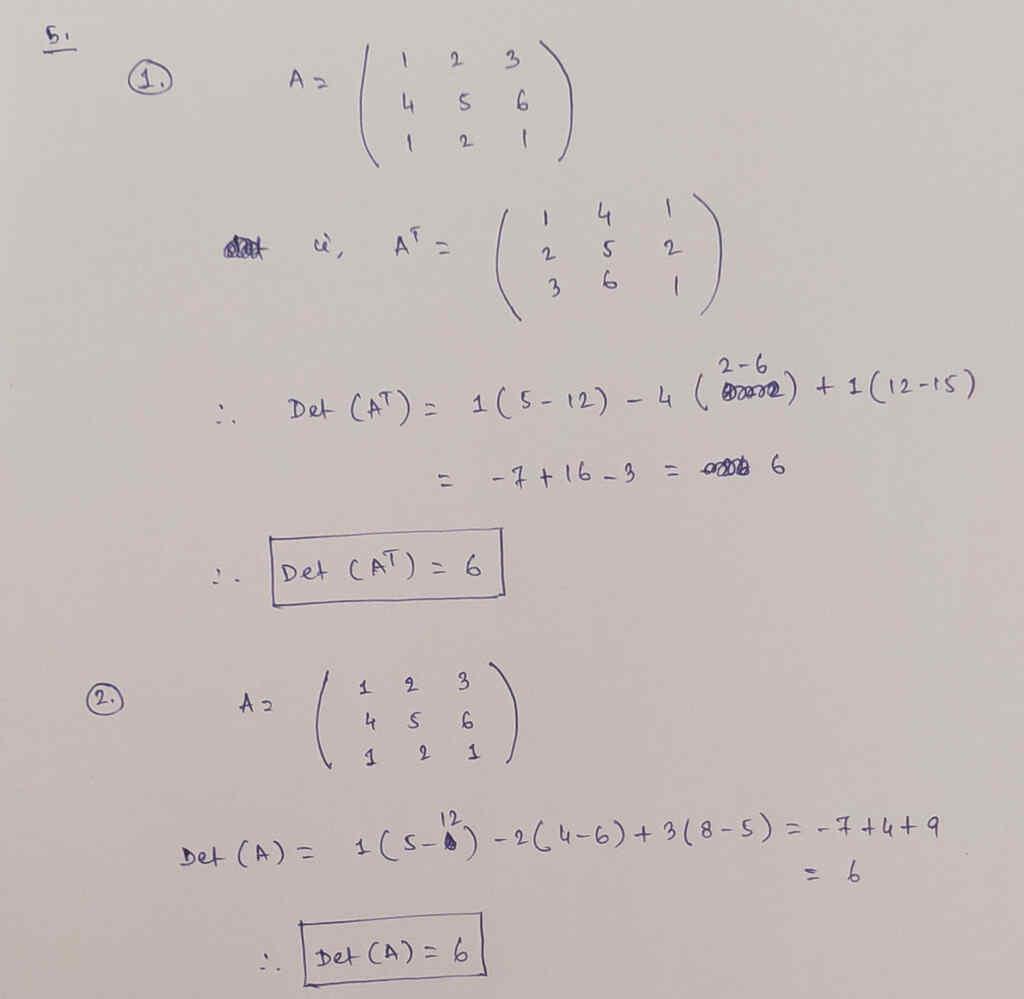 5.
1.
A =
1 2 3
4 5 6
1 2 1
ie, Aᵀ =
1 4 1
2 5 2
3 6 1
∴ Det (Aᵀ) = 1(5-12) - 4 (2-6) + 1(12-15)
= -7 + 16 - 3 = 6
∴ Det (Aᵀ) = 6
2.
A =
1 2 3
4 5 6
1 2 1
Det (A) = 1(5-12) - 2(4-6) + 3(8-5) = -7+4+9
= 6
∴ Det (A) = 6